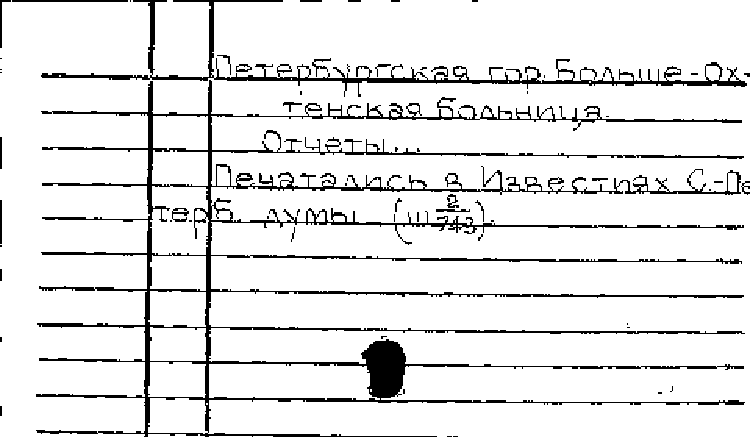 Петербургская гор. Больше-Ох-
тенская больница.
Отчеты...
Печатались в Известиях С.-Пе
терб. думы (III 2/743).